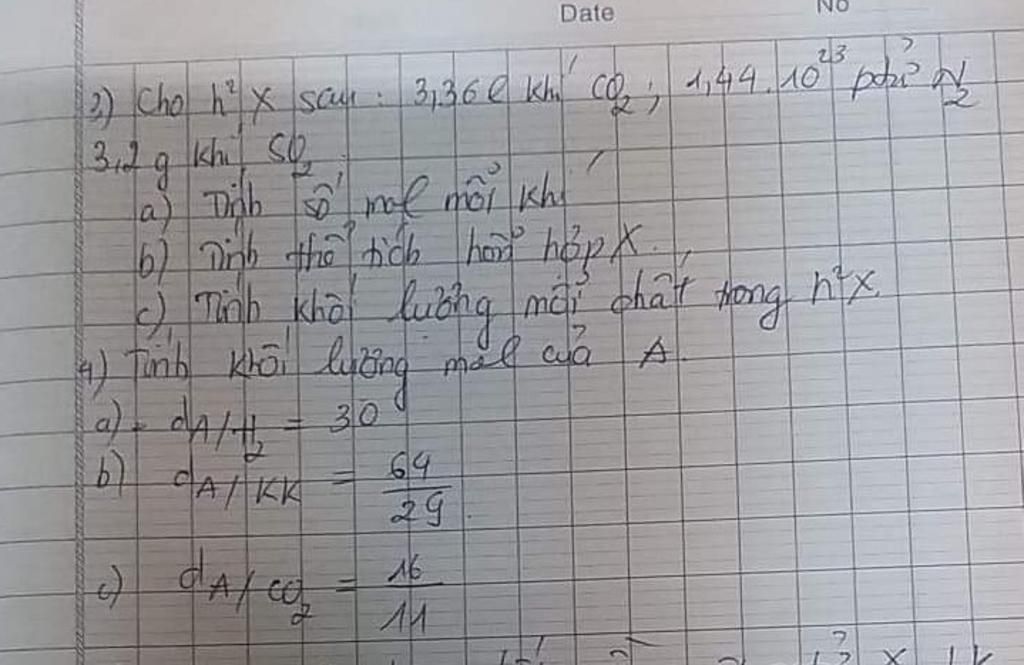 Date No
3) Cho h² X sau : 3,36l khí CO₂ ; 1,44.10²³ ptử N₂
3,2g khí SO₂
a) Tính số mol mỗi khí
b) Tính thể tích hỗn hợp X.
c) Tính khối lượng mỗi chất trong h² X.
4) Tính khối lượng mol của A.
a) d A/H₂ = 30
b) d A/KK = 64/29.
c) d A/CO₂ = 16/11